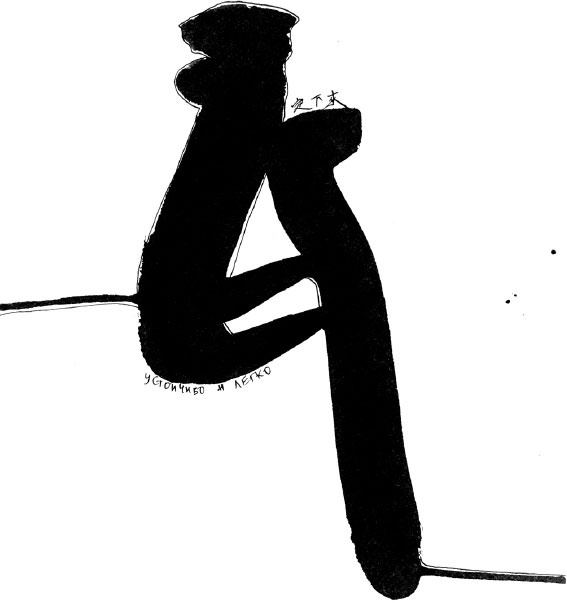 下来
устойчиво и ЛЕГКО